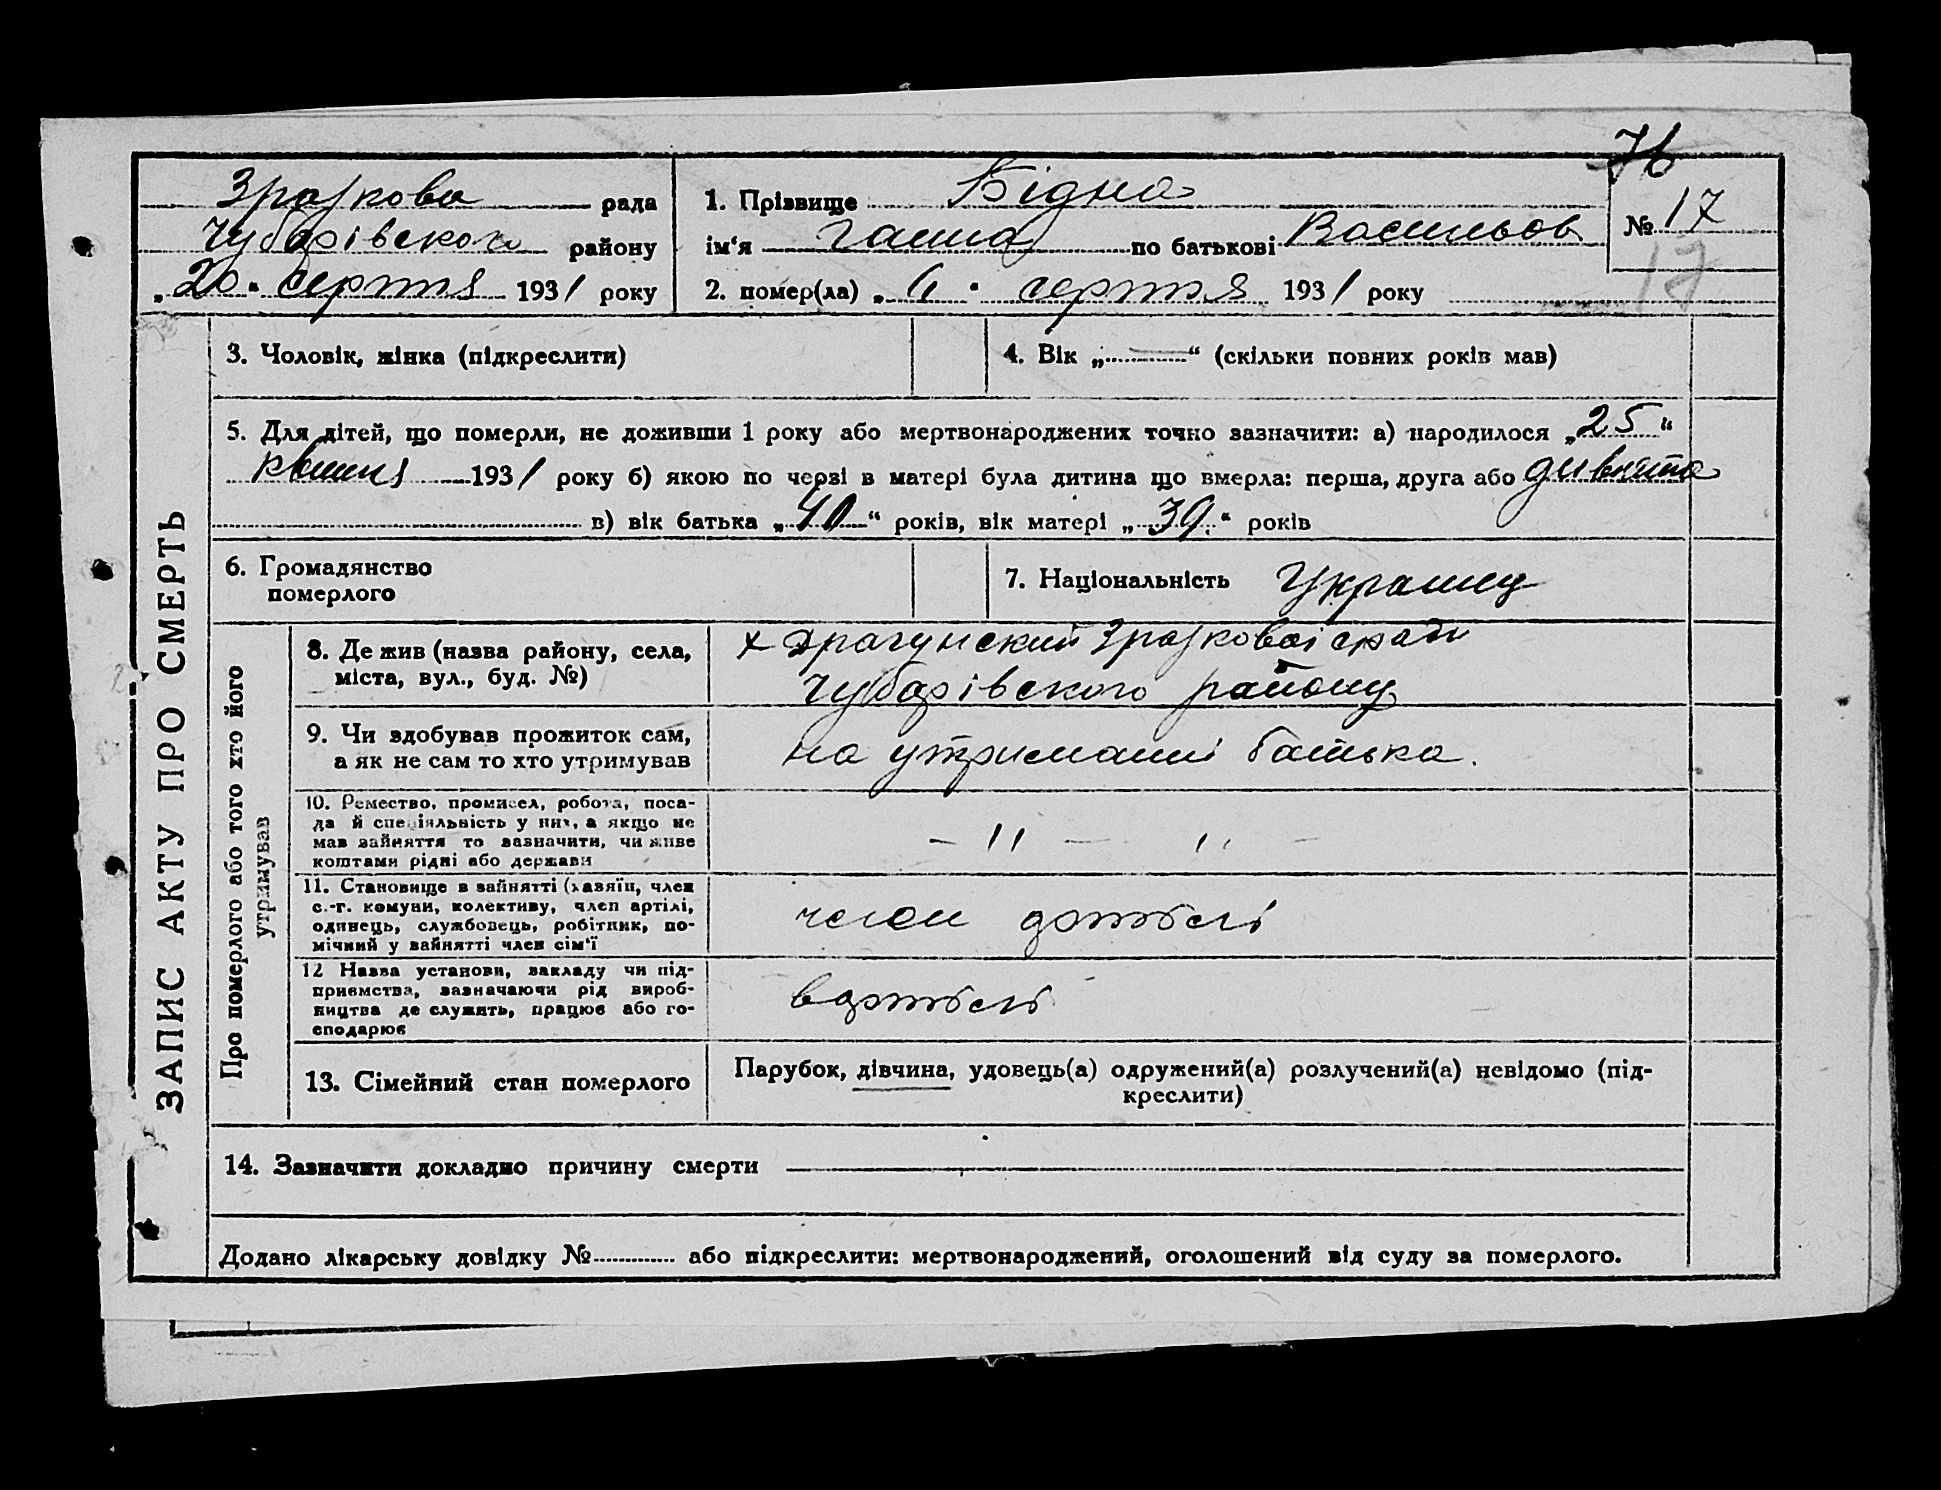 76
Зразкова рада
Чубарівского району
„20“ серпня 1931 року
1. Прізвище Бідна
ім‘я Ганна по батькові Васильов
№ 17
17
2. помер(ла) „6“ серпня 1931 року
ЗАПИС АКТУ ПРО СМЕРТЬ
3. Чоловік, жінка (підкреслити)
4. Вік „—“ (скільки повних років мав)
5. Для дітей, що померли, не доживши 1 року або мертвонароджених точно зазначити: а) народилося „25“
квітня 1931 року б) якою по черзі в матері була дитина що вмерла: перша, друга або девята
в) вік батька „40“ років, вік матері „39“ років
6. Громадянство
померлого
7. Національність Украинц
Про померлого або того хто його
утримував
8. Де жив (назва району, села,
міста, вул., буд. №)
х Драгунский Зразковоі ради
Чубарівского району
9. Чи здобував прожиток сам,
а як не сам то хто утримував
на утриманні батька.
10. Ремество, промисел, робота, поса-
да й спеціяльність у них, а якщо не
мав зайняття то зазначити, чи живе
коштами рідні або держави
— 11 — 11 —
11. Становище в зайнятті (хазяїн, член
с.-г. комуни, колективу, член артілі,
одинець, службовець, робітник, по-
мічний у зайнятті член сім‘ї
член артілі
12 Назва установи, закладу чи під-
приємства, зазначаючи рід вироб-
ництва де служить, працює або го-
сподарює
вартілі
13. Сімейний стан померлого
Парубок, дівчина, удовець(а) одружений(а) розлучений(а) невідомо (під-
креслити)
14. Зазначити докладно причину смерти
Додано лікарську довідку № або підкреслити: мертвонароджений, оголошений від суду за померлого.